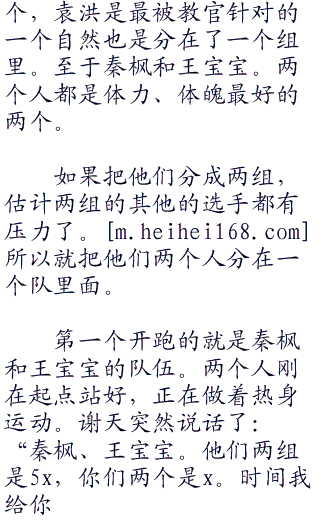 个，袁洪是最被教官针对的
一个自然也是分在了一个组
里。至于秦枫和王宝宝。两
个人都是体力、体魄最好的
两个。
如果把他们分成两组，
估计两组的其他的选手都有
压力了。[m.heihei168.com]
所以就把他们两个人分在一
个队里面。
第一个开跑的就是秦枫
和王宝宝的队伍。两个人刚
在起点站好，正在做着热身
运动。谢天突然说话了：
“秦枫、王宝宝。他们两组
是5x，你们两个是x。时间我
给你